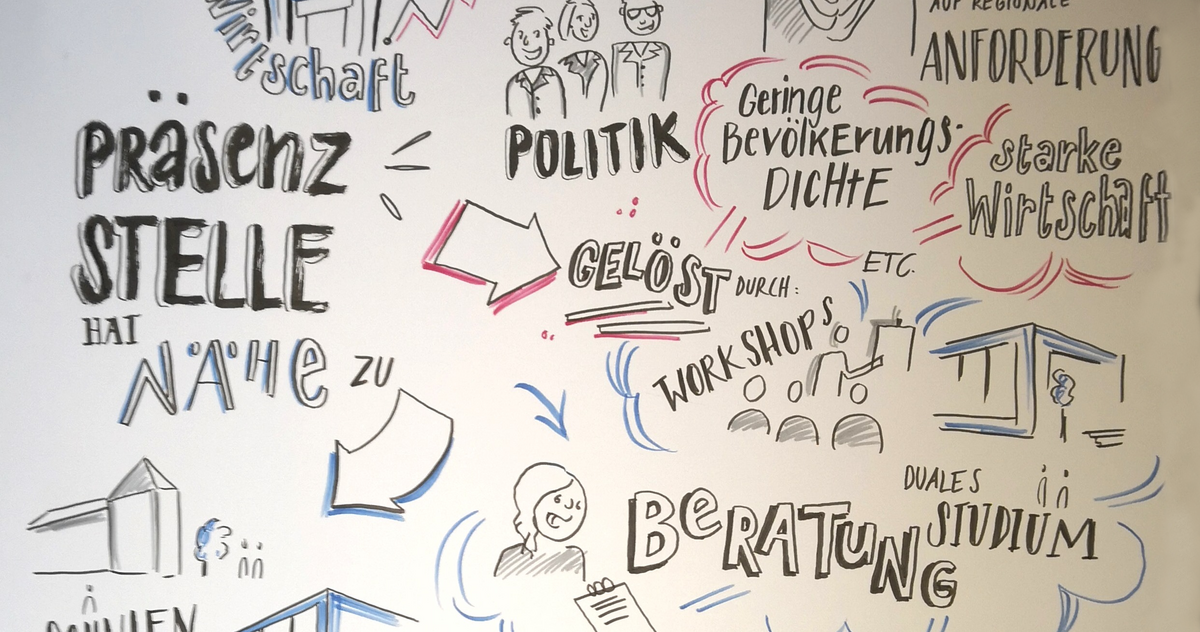 Wirtschaft
PRÄSENZ
STELLE
HAT
NÄHE ZU
POLITIK
AUF REGIONALE
ANFORDERUNG
Geringe
BevölkErungs-
DICHtE
starke
Wirtschaft
ETC.
GELÖST DURCH:
WORKSHOPS
BeRATUNG
DUALES
STUDIUM